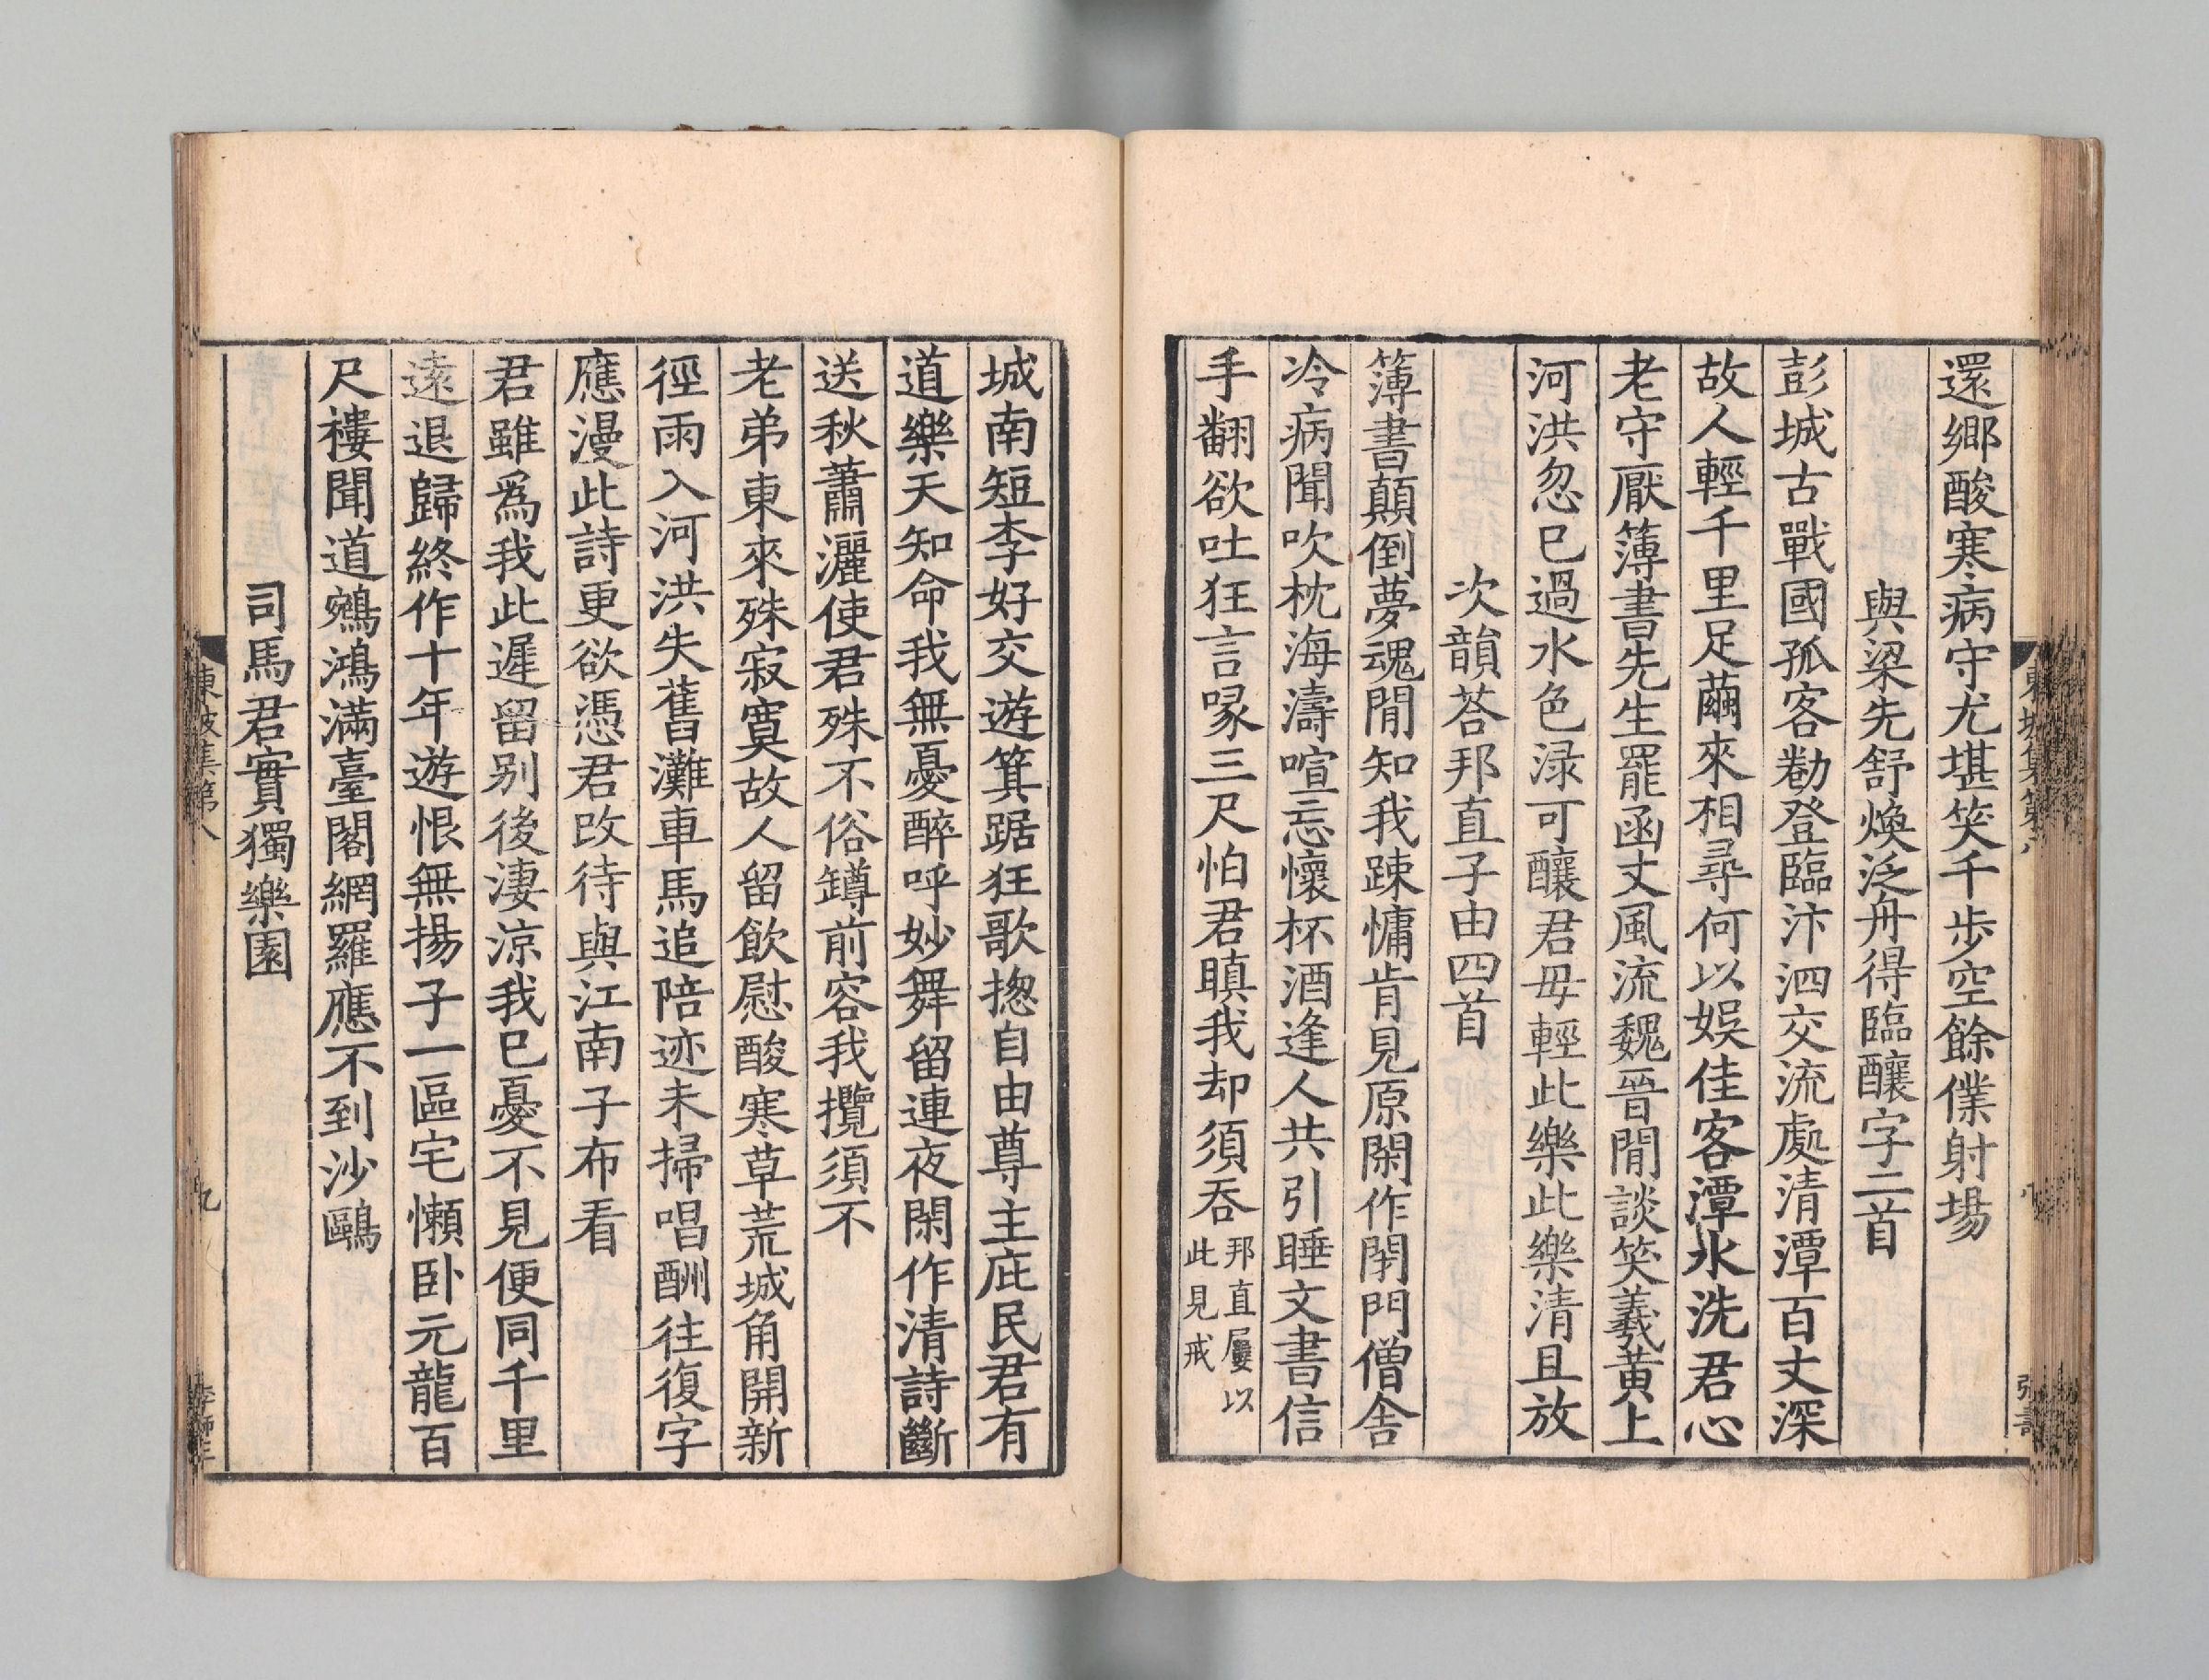 還鄉酸寒病守尤堪笑千步空餘僕射場
與梁先舒煥泛舟得臨釀字二首
彭城古戰國孤客勌登臨汴泗交流處清潭百丈深
故人輕千里足繭來相尋何以娛佳客潭水洗君心
老守厭簿書先生罷函丈風流魏晉間談笑羲黃上
河洪忽已過水色淥可釀君毋輕此樂此樂清且放
次韻荅邦直子由四首
簿書顛倒夢魂間知我踈慵肯見原閑作閉門僧舍
冷病聞吹枕海濤喧忘懷杯酒逢人共引睡文書信
手翻欲吐狂言喙三尺怕君瞋我却須吞邦直屢以
此見戒
城南短李好交遊箕踞狂歌揔自由尊主庇民君有
道樂天知命我無憂醉呼妙舞留連夜閑作清詩斷
送秋蕭灑使君殊不俗罇前容我攬須不
老弟東來殊寂寞故人留飲慰酸寒草荒城角開新
徑雨入河洪失舊灘車馬追陪迹未掃唱酬往復字
應漫此詩更欲憑君改待與江南子布看
君雖爲我此遲留别後淒涼我已憂不見便同千里
遠退歸終作十年遊恨無揚子一區宅懶卧元龍百
尺樓聞道鵷鴻滿臺閣網羅應不到沙鷗
司馬君實獨樂園
東坡集第八
九